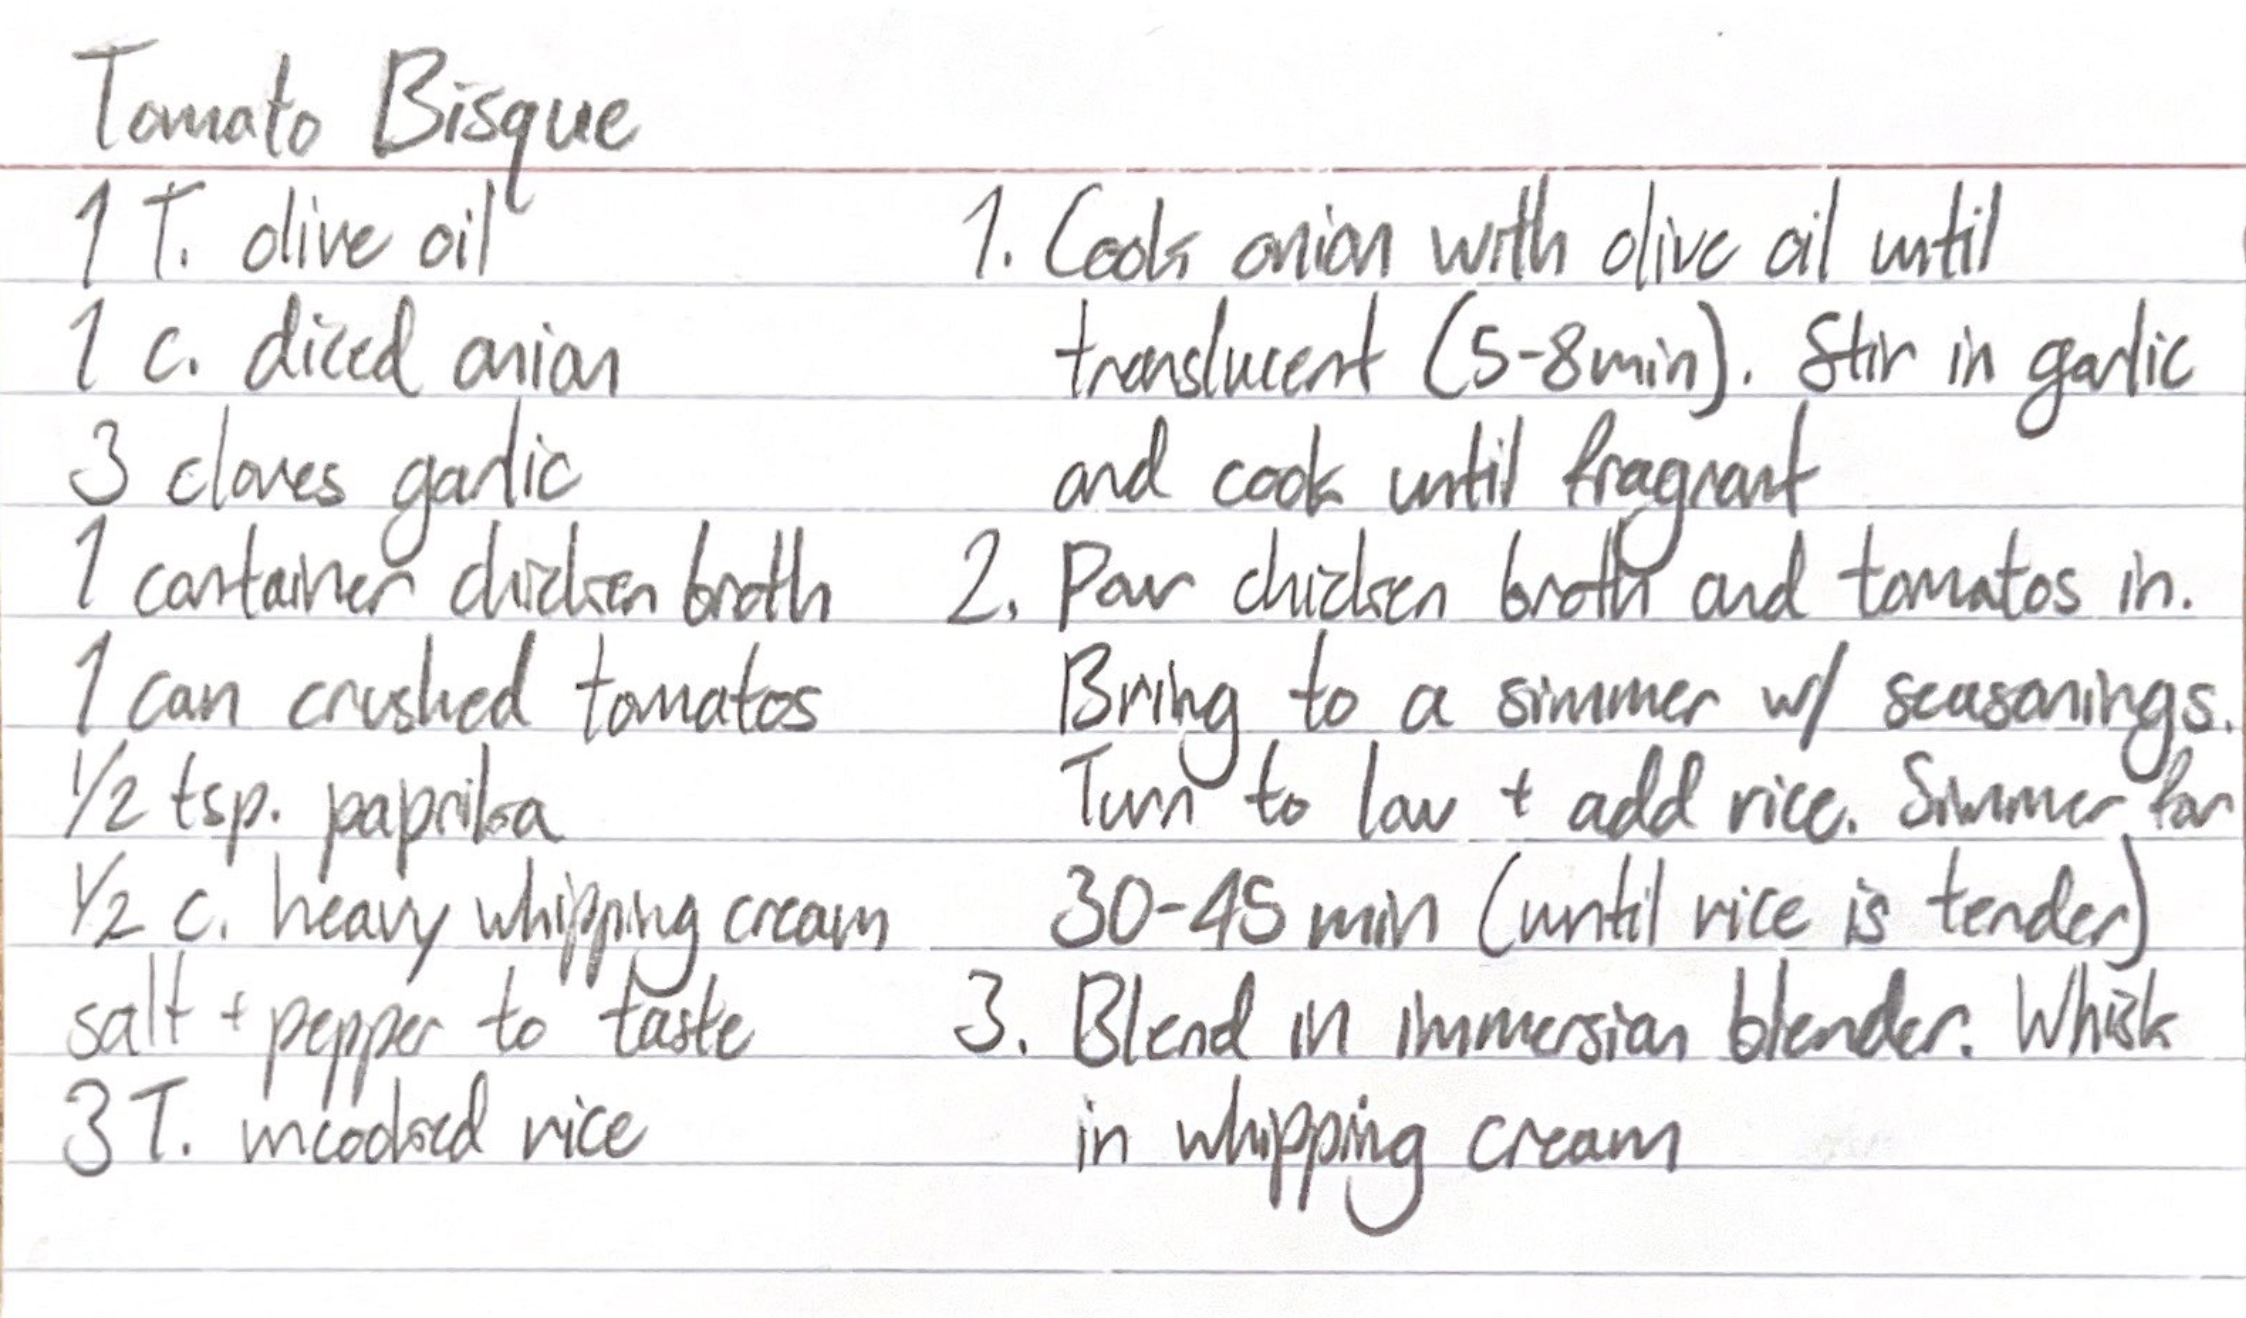 Tomato Bisque
1 T. olive oil
1 c. diced onion
3 cloves garlic
1 container chicken broth
1 can crushed tomatos
1/2 tsp. paprika
1/2 c. heavy whipping cream
salt + pepper to taste
3 T. uncooked rice
1. Cook onion with olive oil until
translucent (5-8min). Stir in garlic
and cook until fragrant
2. Pour chicken broth and tomatos in.
Bring to a simmer w/ seasonings.
Turn to low + add rice. Simmer for
30-45 min (until rice is tender)
3. Blend in immersion blender. Whisk
in whipping cream